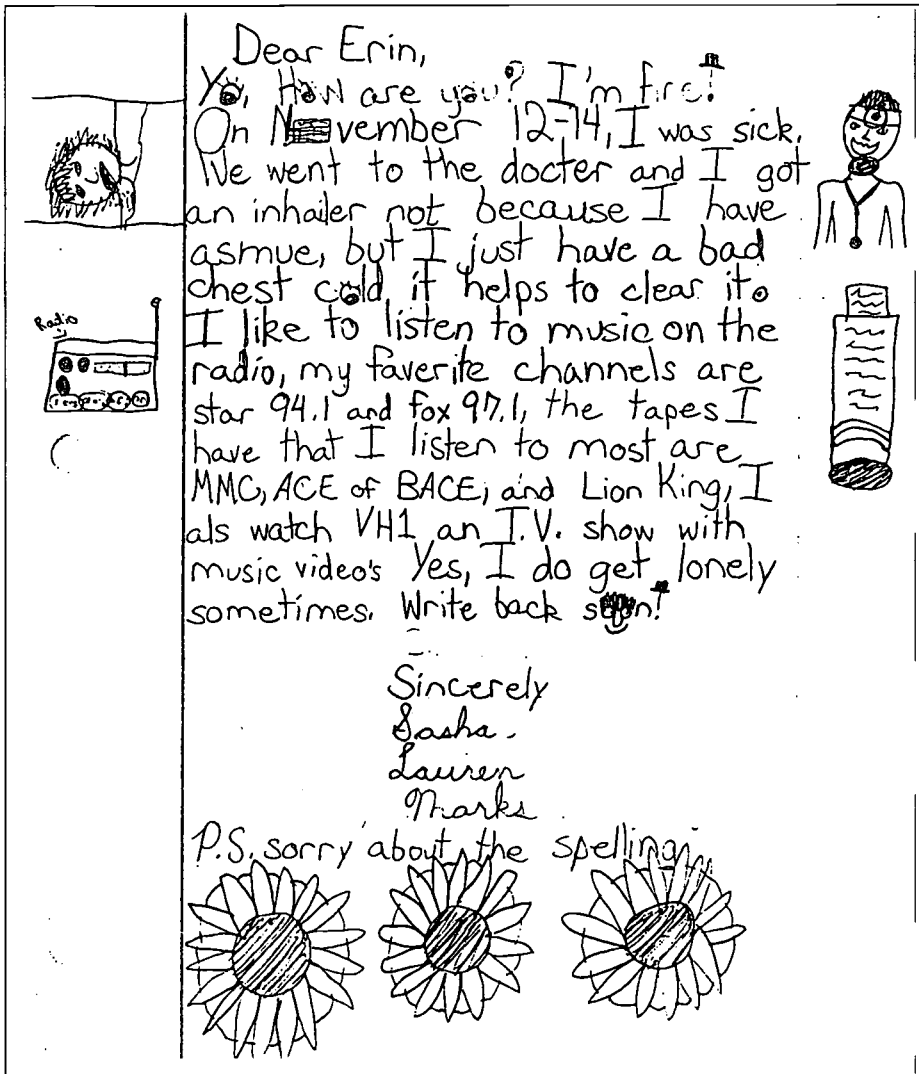 Dear Erin,
Yo, How are you? I'm fine!
On November 12-14, I was sick.
We went to the docter and I got
an inhailer not because I have
asmue, but I just have a bad
chest cold, it helps to clear it.
Radio
I like to listen to music on the
radio, my faverite channels are
star 94.1 and fox 97.1, the tapes I
have that I listen to most are
MMC, ACE of BACE, and Lion King, I
als watch VH1 an T.V. show with
music video's Yes, I do get lonely
sometimes. Write back soon!
Sincerely
Sasha
Lauren
Marks
P.S. sorry about the spelling.